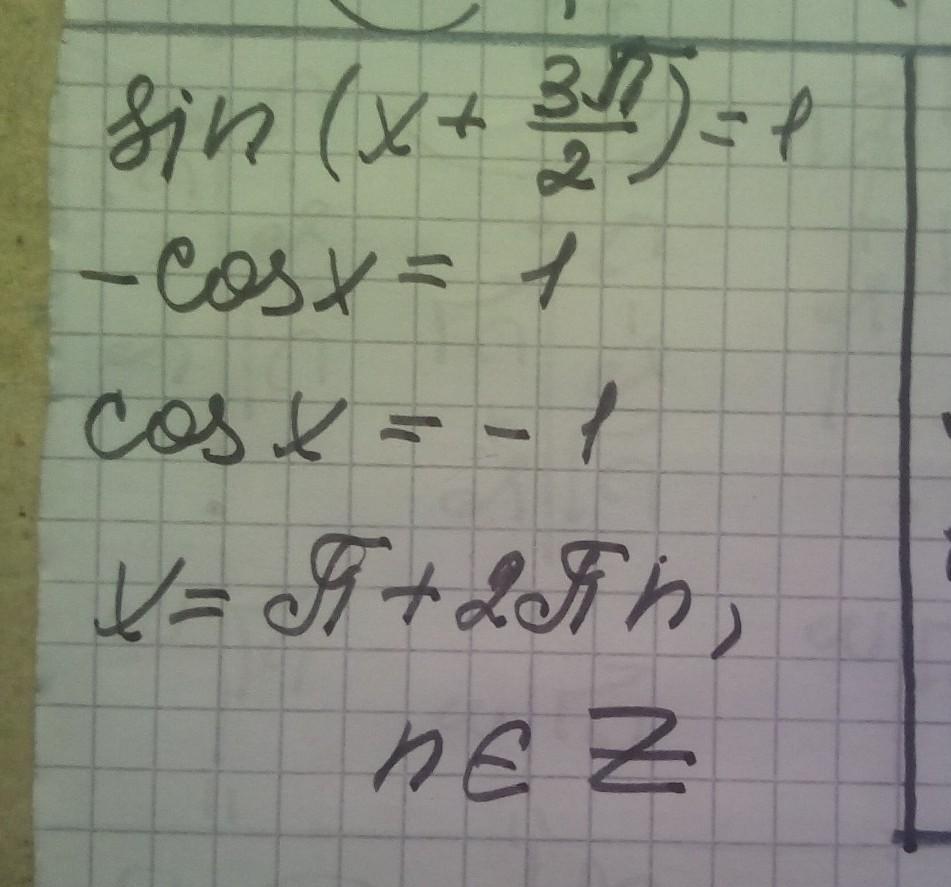 sin (x + 3π/2) = 1
-cos x = 1
cos x = - 1
x = π + 2πn,
n ∈ Z